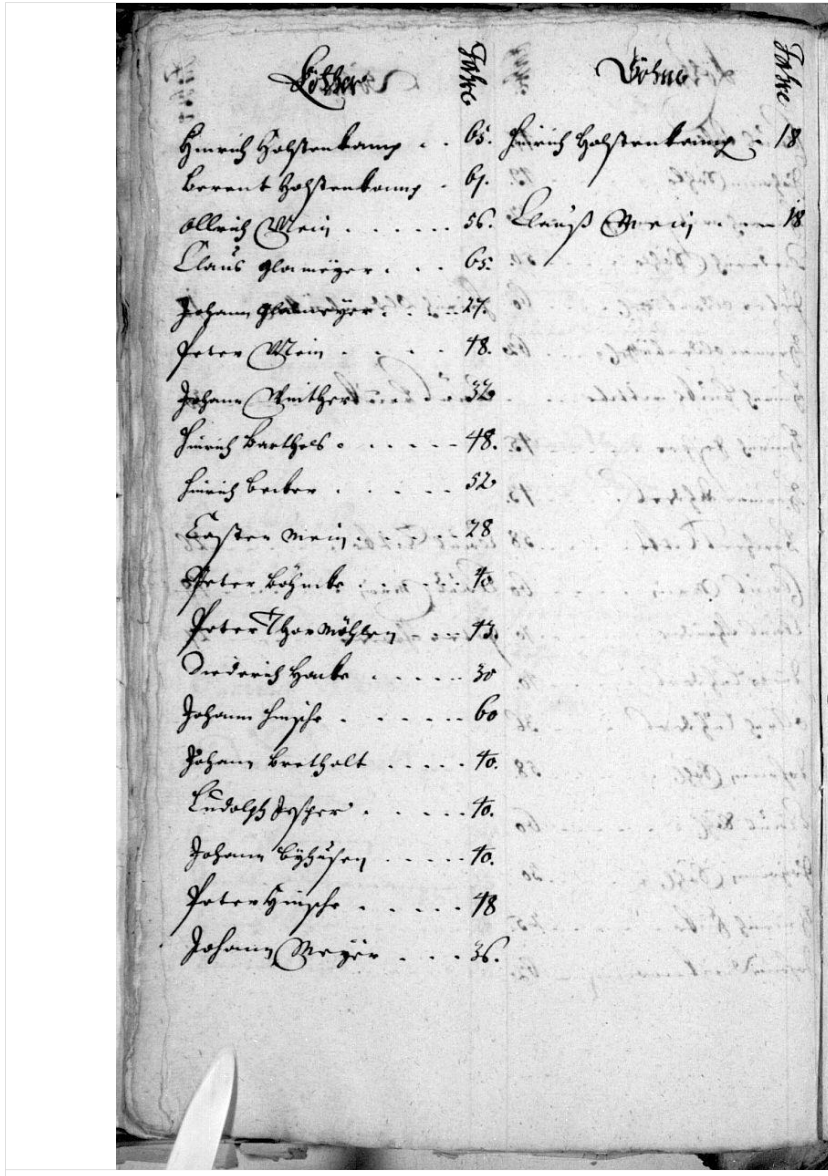 Väther Jahre Söhne Jahre
Hinrich Holstenkamp . . 65. Hinrich Holstenkamp . 18
Berent Holstenkamp . 61.
Ollrich Mein . . . . . . 56. Clauß Mein . . . 18
Claus Glameyer . . . 65.
Johann Glameyer . . . 27.
Peter Mein . . . . 48.
Johann . . . 32
Hinrich Barthels . . . . . 48.
Hinrich Becker . . . . . 52
Casten Mein . . . . . 28
Peter Böhncke . . . . . 40
Peter Thor Möhlen . . . 43.
Diederich Hacke . . . . . 30
Johann Hinsche . . . . . 60
Johann Bretholt . . . . . 40.
Ludolph Jesper . . . . . 40.
Johann Byhusen . . . . . 40.
Peter Hinsche . . . . . 48
Johann Meyer . . . 36.